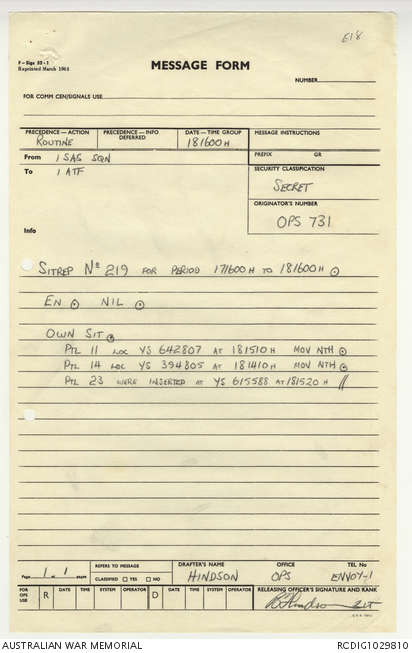 E18
F—Sigs 52-1
Reprinted March 1964
MESSAGE FORM
NUMBER
FOR COMM CEN/SIGNALS USE
PRECEDENCE—ACTION PRECEDENCE—INFO DEFERRED DATE—TIME GROUP MESSAGE INSTRUCTIONS
ROUTINE 181600H
PREFIX GR
From 1 SAS SQN
To 1 ATF
SECURITY CLASSIFICATION
SECRET
ORIGINATOR'S NUMBER
OPS 731
Info
SITREP Nº 219 FOR PERIOD 171600H TO 181600H ⊙
EN ⊙ NIL ⊙
OWN SIT ⊙
PTL 11 LOC YS 642807 AT 181510H MOV NTH ⊙
PTL 14 LOC YS 394805 AT 181410H MOV NTH ⊙
PTL 23 WERE INSERTED AT YS 615588 AT 181520H //
Page 1 of 1 pages
REFERS TO MESSAGE
CLASSIFIED □ YES □ NO
DRAFTER'S NAME OFFICE TEL No
HINDSON OPS ENVOY-1
FOR OPS USE R DATE TIME SYSTEM OPERATOR D DATE TIME SYSTEM OPERATOR
RELEASING OFFICER'S SIGNATURE AND RANK
AUSTRALIAN WAR MEMORIAL RCDIG1029810